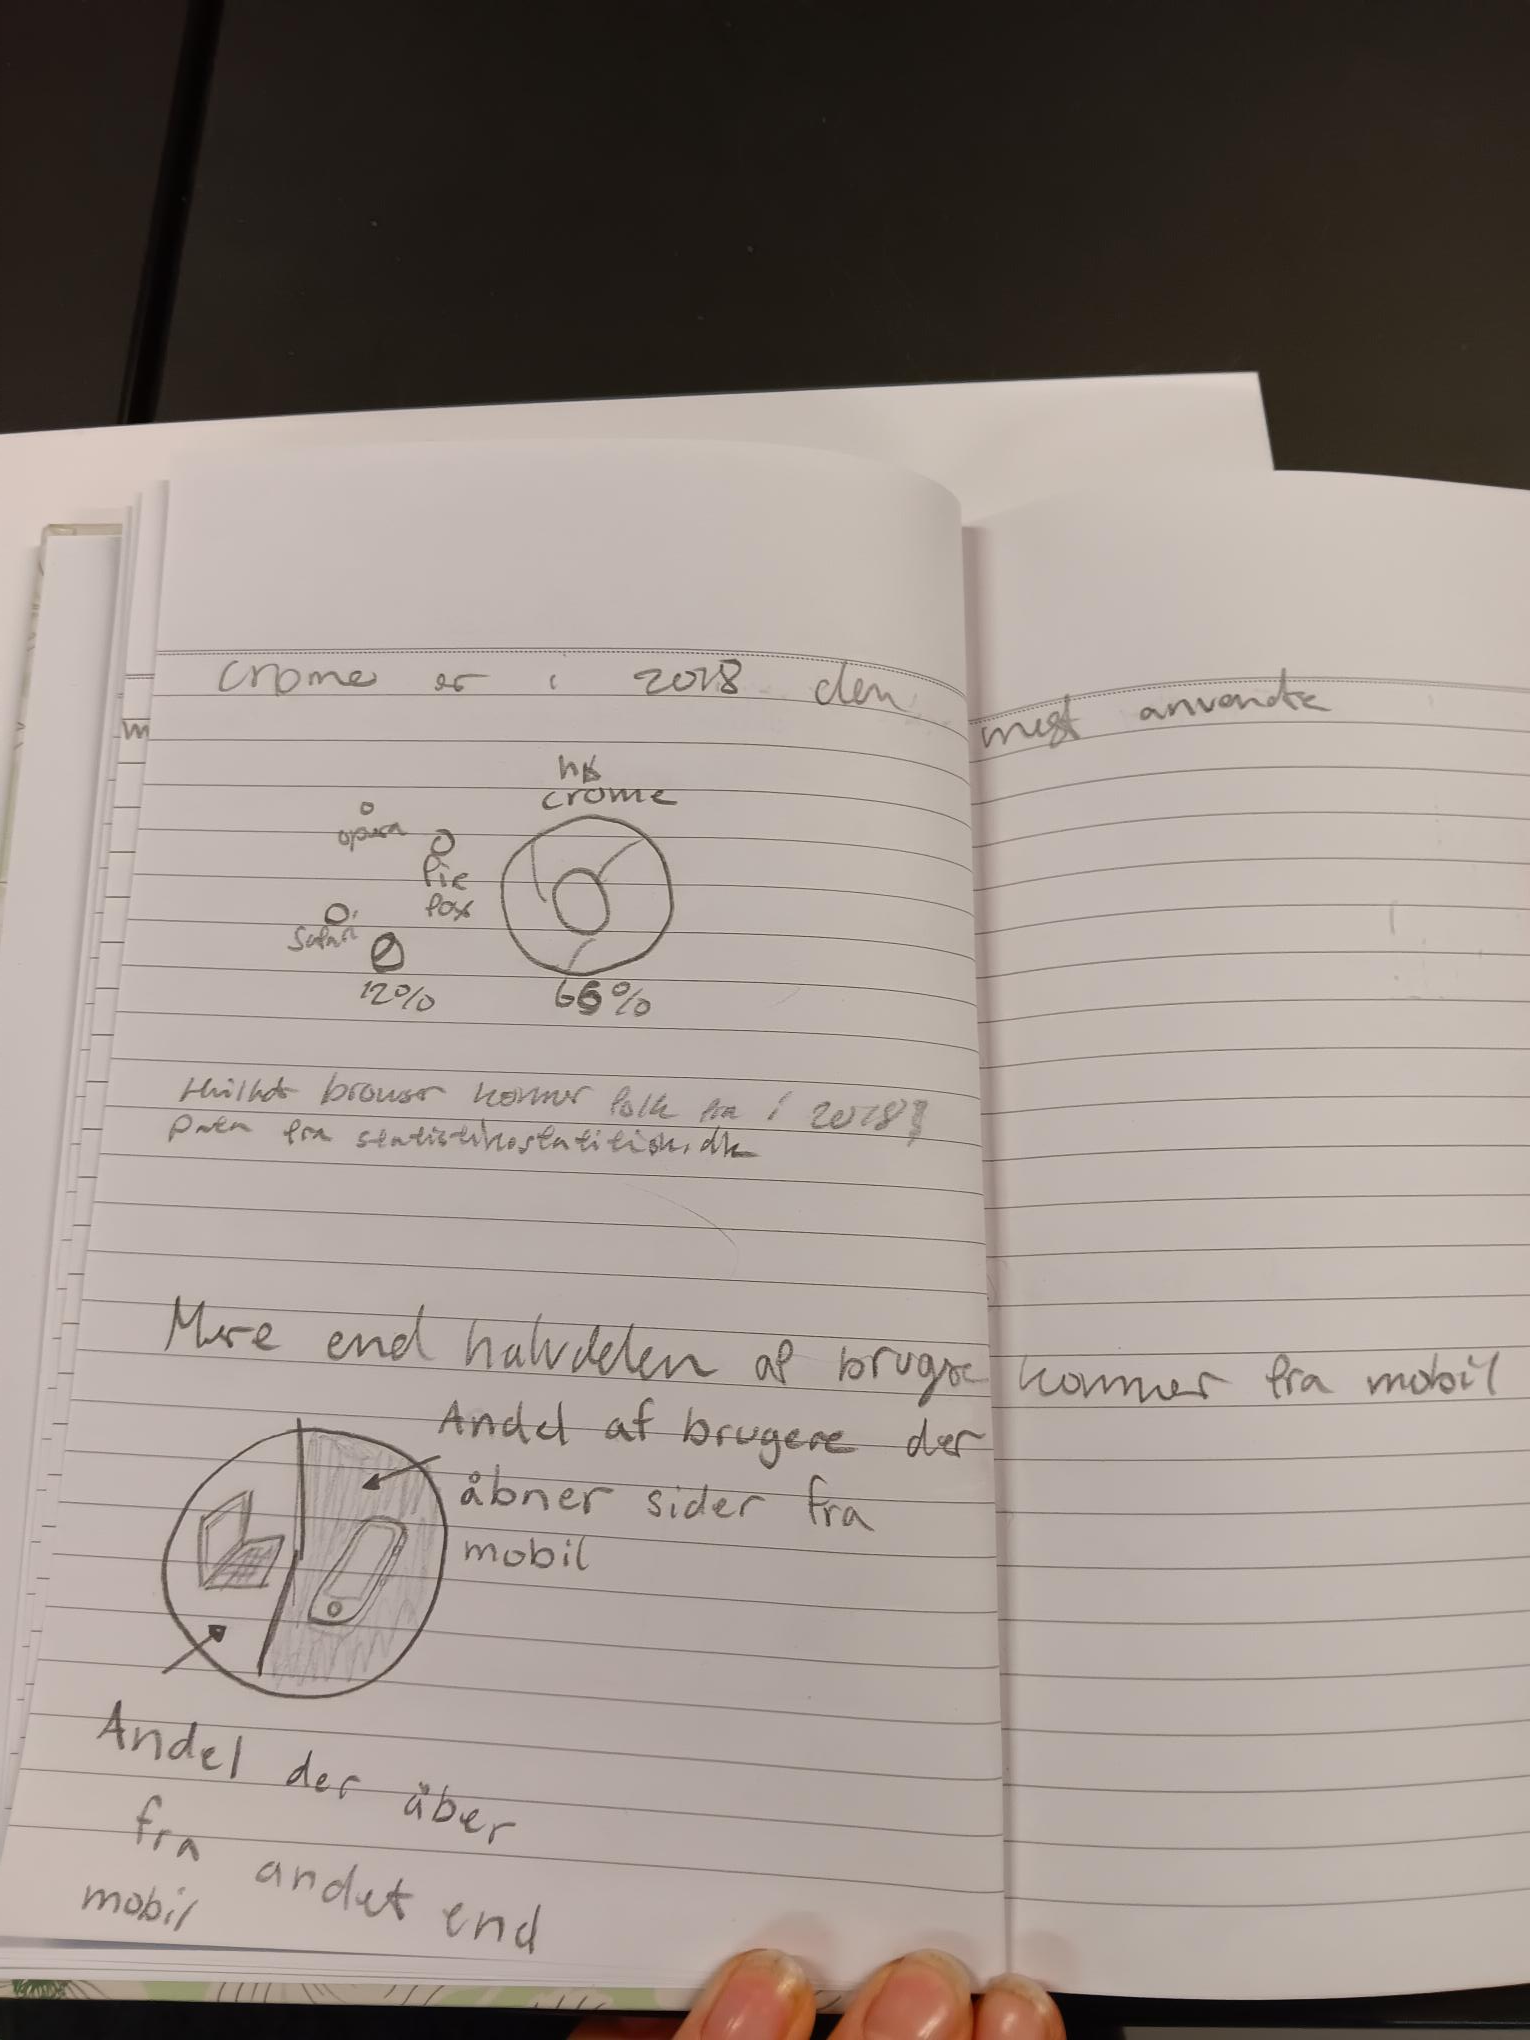 Crome er i 2018 den mest anvendte
crome
opera
Fire
fox
Safari
12%
66%
Hvilket browser kommer folk fra i 2018?
Data fra
Mere end halvdelen af bruger kommer fra mobil
Andel af brugere der
åbner sider fra
mobil
Andel der åber
fra andet end
mobil